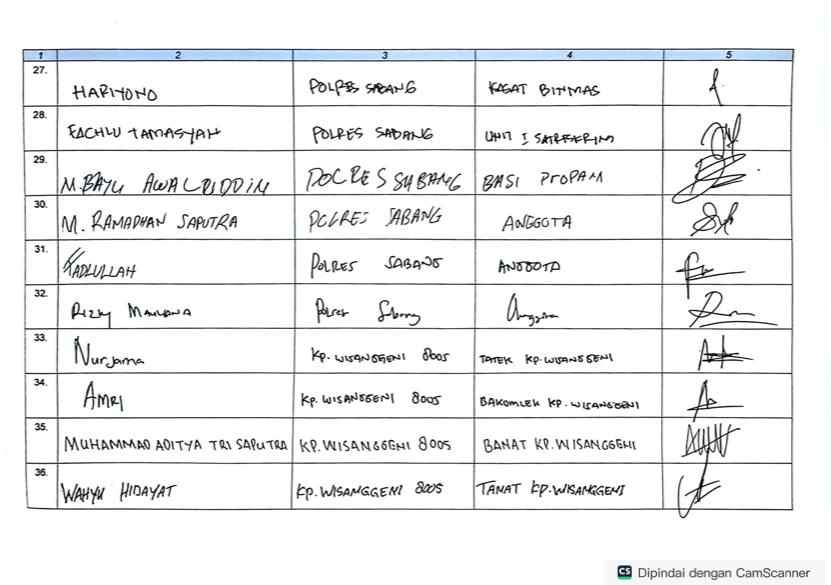 1 2 3 4 5
27. HARIYONO POLRES SABANG KASAT BINMAS
28. FACHLU TAMASYAH POLRES SABANG UNIT I SATRESKRIM
29. M. BAYU AWALRIDDIN POLRES SABANG BASI PROPAM
30. M. RAMADHAN SAPUTRA POLRES SABANG ANGGOTA
31. FADLULLAH POLRES SABANG ANGGOTA
32. RIZKY MAULANA Polres Sabang Anggota
33. Nurjama KP. WISANGGENI 8005 TATEK KP. WISANGGENI
34. AMRI KP. WISANGGENI 8005 BAKOMLEK KP. WISANGGENI
35. MUHAMMAD ADITYA TRI SAPUTRA KP. WISANGGENI 8005 BANAT KP. WISANGGENI
36. WAHYU HIDAYAT KP. WISANGGENI 8005 TANAT KP. WISANGGENI
CS Dipindai dengan CamScanner